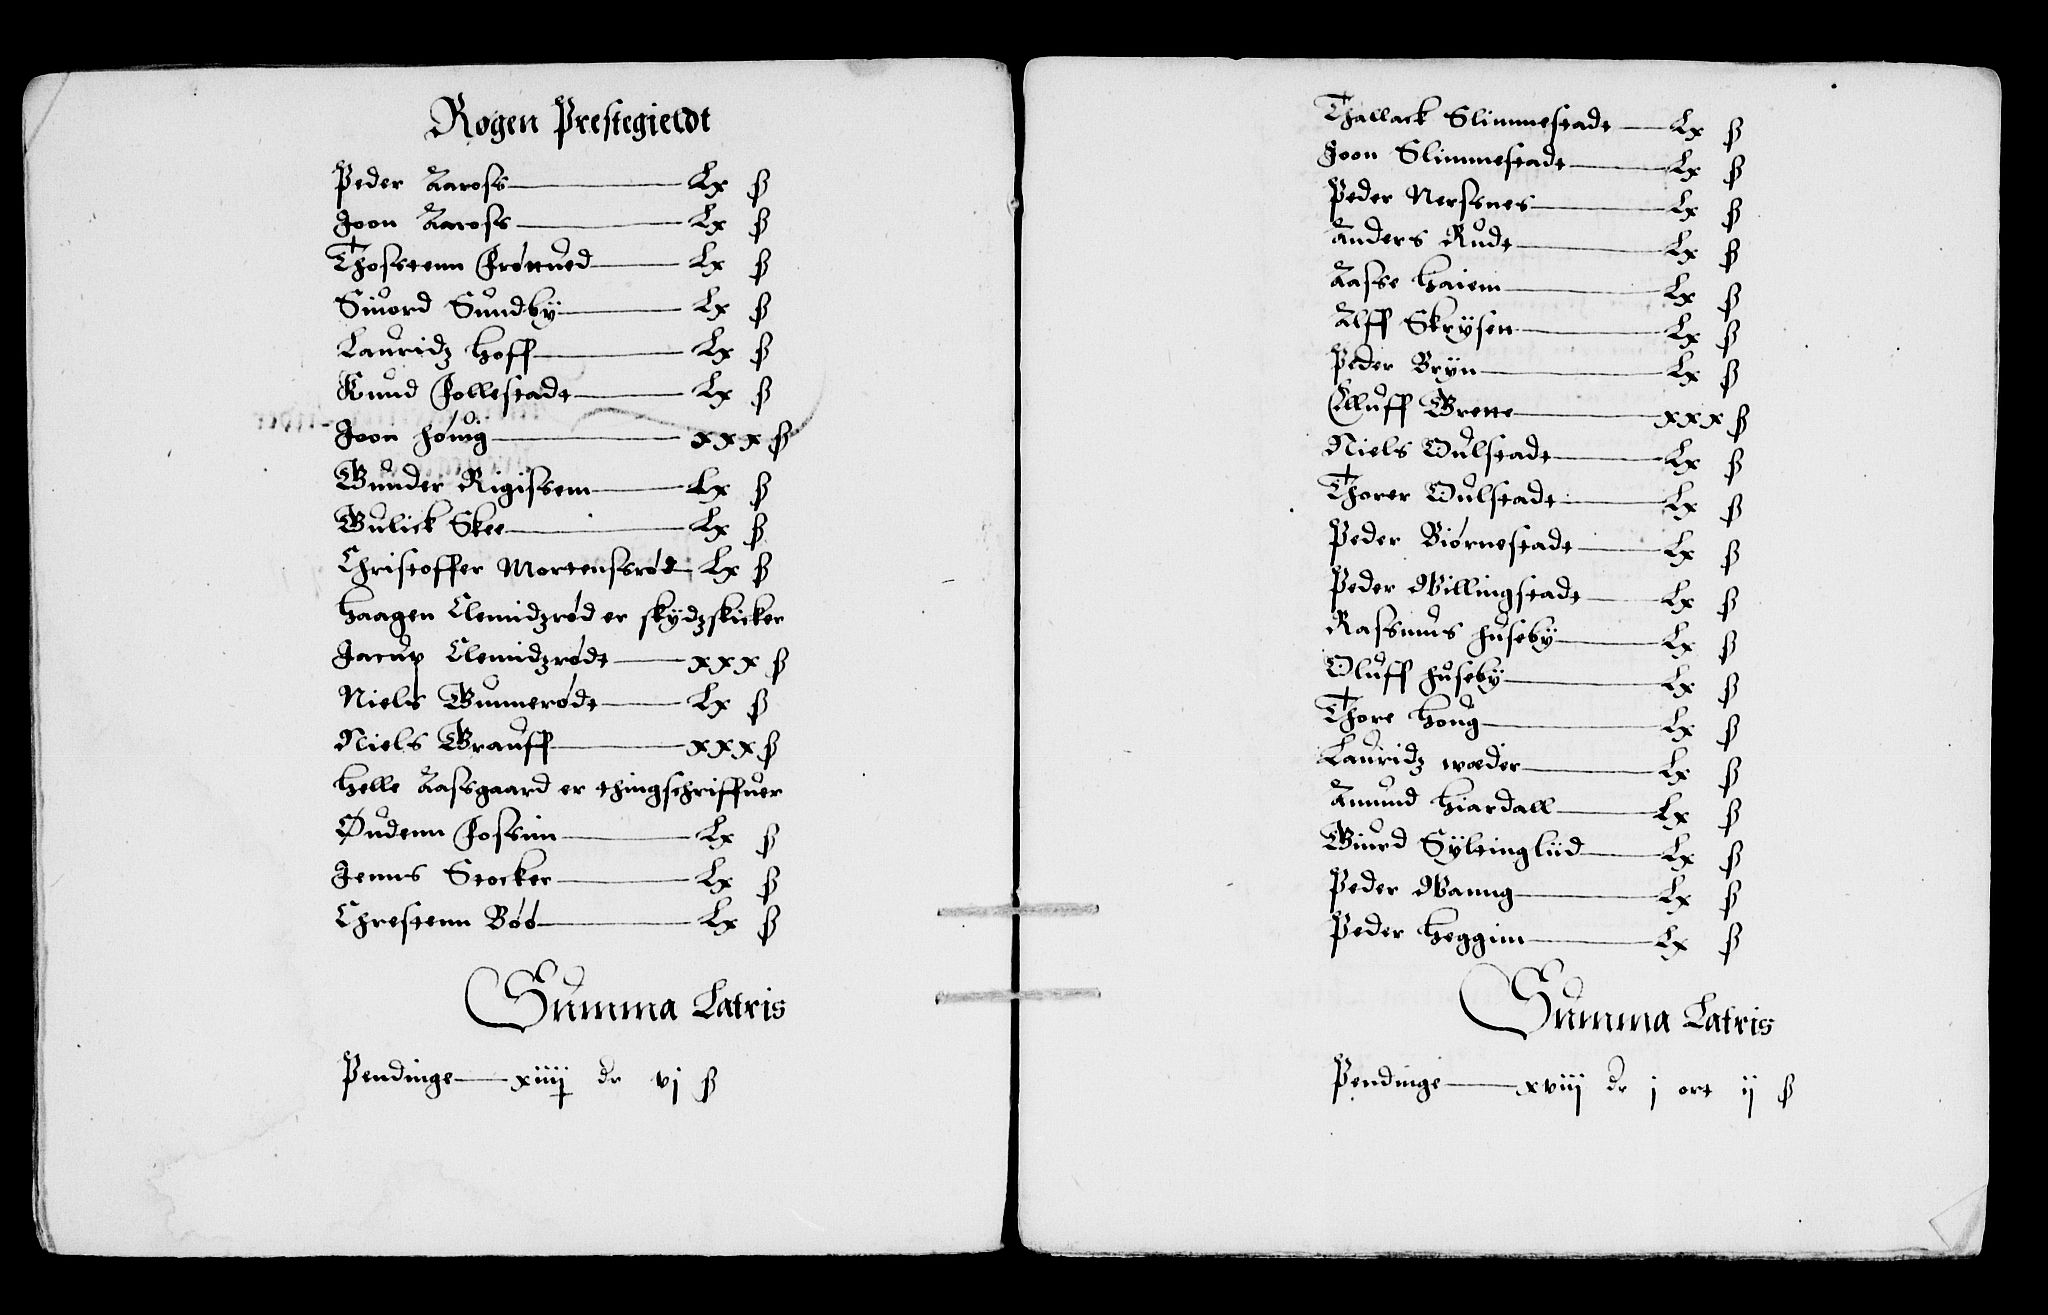 Røgen Prestegieldt
Peder Aaross — Lx ß
Joon Aaross — Lx ß
Thosstenn Frøttued — Lx ß
Siuord Sundbÿ — Lx ß
Lauridz Hoff — Lx ß
Knud Follestadt — Lx ß
Joon Høuig — xxx ß
Gunder Rigissem — Lx ß
Gulick Skee — Lx ß
Christoffer Mortenssrød — Lx ß
Haagen Clemidzrød er skydzskicker
Jacup Clemidzrødt — xxx ß
Niels Gunnerødt — Lx ß
Niels Grauff — xxx ß
Helle Aassgaard er thingschriffuer
Øudenn Fossim — Lx ß
Jenns Stocker — Lx ß
Chrestenn Bøø — Lx ß
Summa Latris
Pendinge — xiiij dr vj ß
Thallack Slimmestadt — Lx ß
Joon Slimmestadt — Lx ß
Peder Nerssnes — Lx ß
Anders Rudt — Lx ß
Aasse Haiem — Lx ß
Alff Skrÿsett — Lx ß
Peder Brÿn — Lx ß
Elluff Grette — xxx ß
Niels Oulstadt — Lx ß
Thorer Oulstadt — Lx ß
Peder Biørnestadt — Lx ß
Peder Willingstadt — Lx ß
Rassmus Husebÿ — Lx ß
Oluff Husebÿ — Lx ß
Thore Houg — Lx ß
Lauridz wæder — Lx ß
Amund Hiardall — Lx ß
Giurd Sÿltingliid — Lx ß
Peder Wanng — Lx ß
Peder Heggim — Lx ß
Summa Latris
Pendinge — xviij dr j ort ij ß